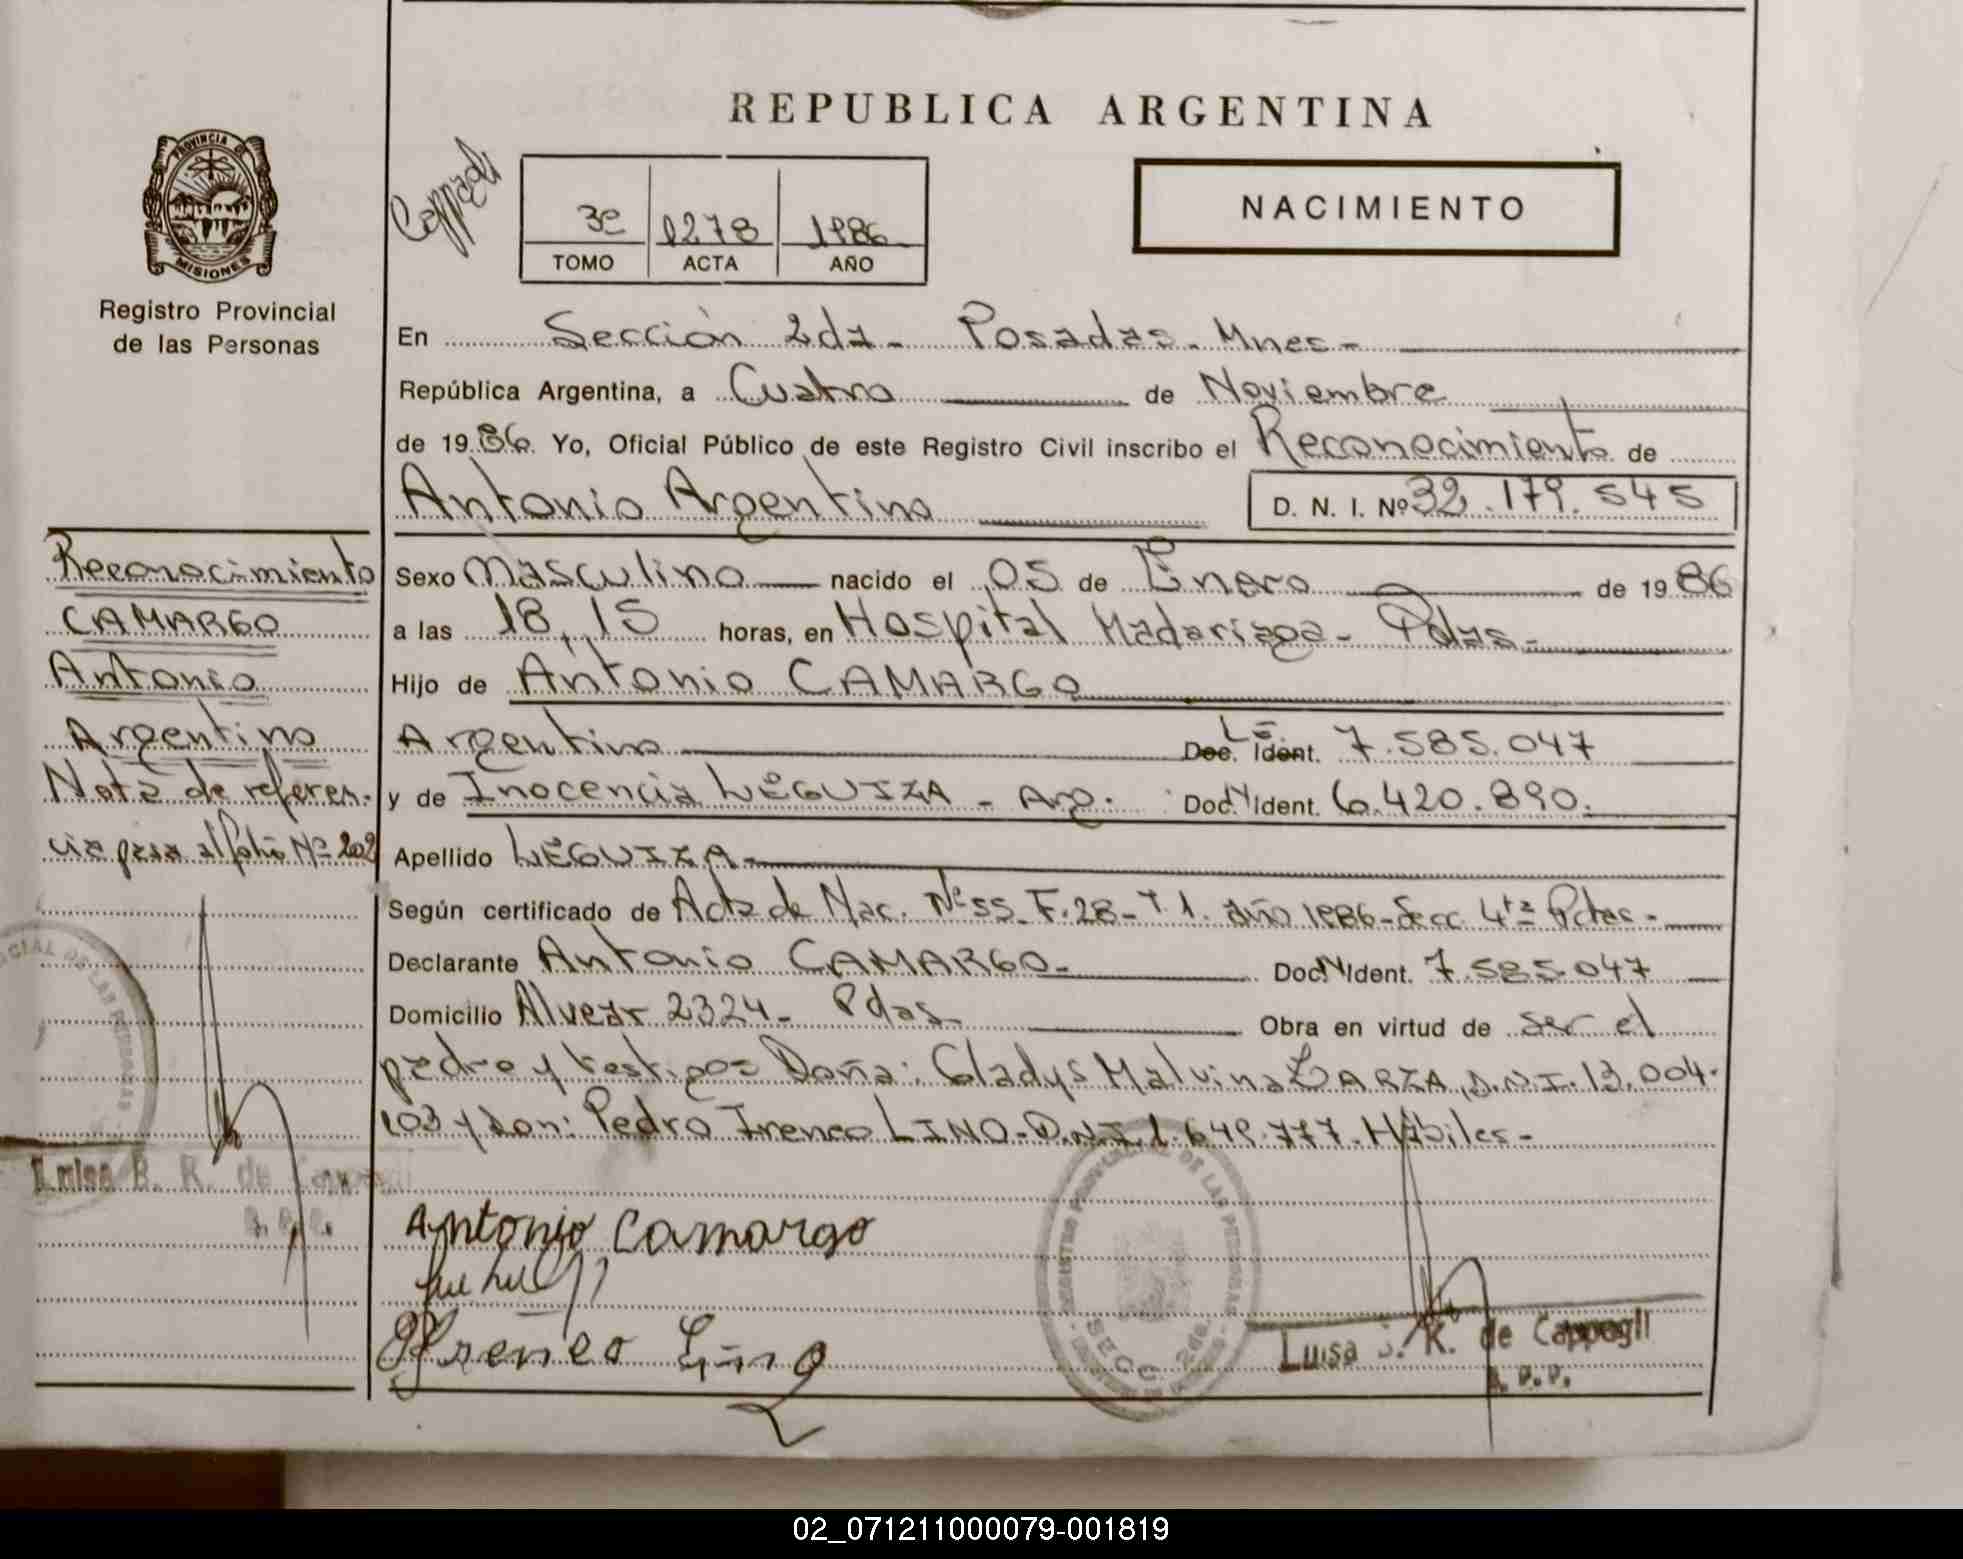 REPUBLICA ARGENTINA
PROVINCIA DE
MISIONES
Registro Provincial
de las Personas
3º 1278 1986
TOMO ACTA AÑO
NACIMIENTO
En Sección 2da - Posadas - Mnes -
República Argentina, a Cuatro de Noviembre
de 1986. Yo, Oficial Público de este Registro Civil inscribo el Reconocimiento de
Antonio Argentino D. N. I. Nº 32.179.545
Sexo Masculino nacido el 05 de Enero de 1986
a las 18,15 horas, en Hospital Madariaga - Pdas -
Hijo de Antonio CAMARGO
Argentino L.E. Doc. Ident. 7.585.047
y de Inocencia LEGUIZA - Arg. Doc. Ident. 6.420.890.
Apellido LEGUIZA -
Según certificado de Acta de Nac. Nº 55 - F. 28 - T 1. año 1986 - Secc 4ta Pdas -
Declarante Antonio CAMARGO - Doc. Ident. 7.585.047
Domicilio Alvear 2324 - Pdas Obra en virtud de ser el
padre y testigos Doña: Gladys Malvina ZARZA, D.N.I. 13.004.
103 y don: Pedro Ireneo LINO - D.N.I. 1.649.777. Hábiles -
Antonio Camargo
Ireneo Lino
Luisa de Cappogli
Reconocimiento
CAMARGO
Antonio
Argentino
Nota de referen-
cia pasa al folio Nº 202
Luisa B. R. de
REGISTRO PROVINCIAL DE LAS PERSONAS
SECC. 2da.
02_071211000079-001819